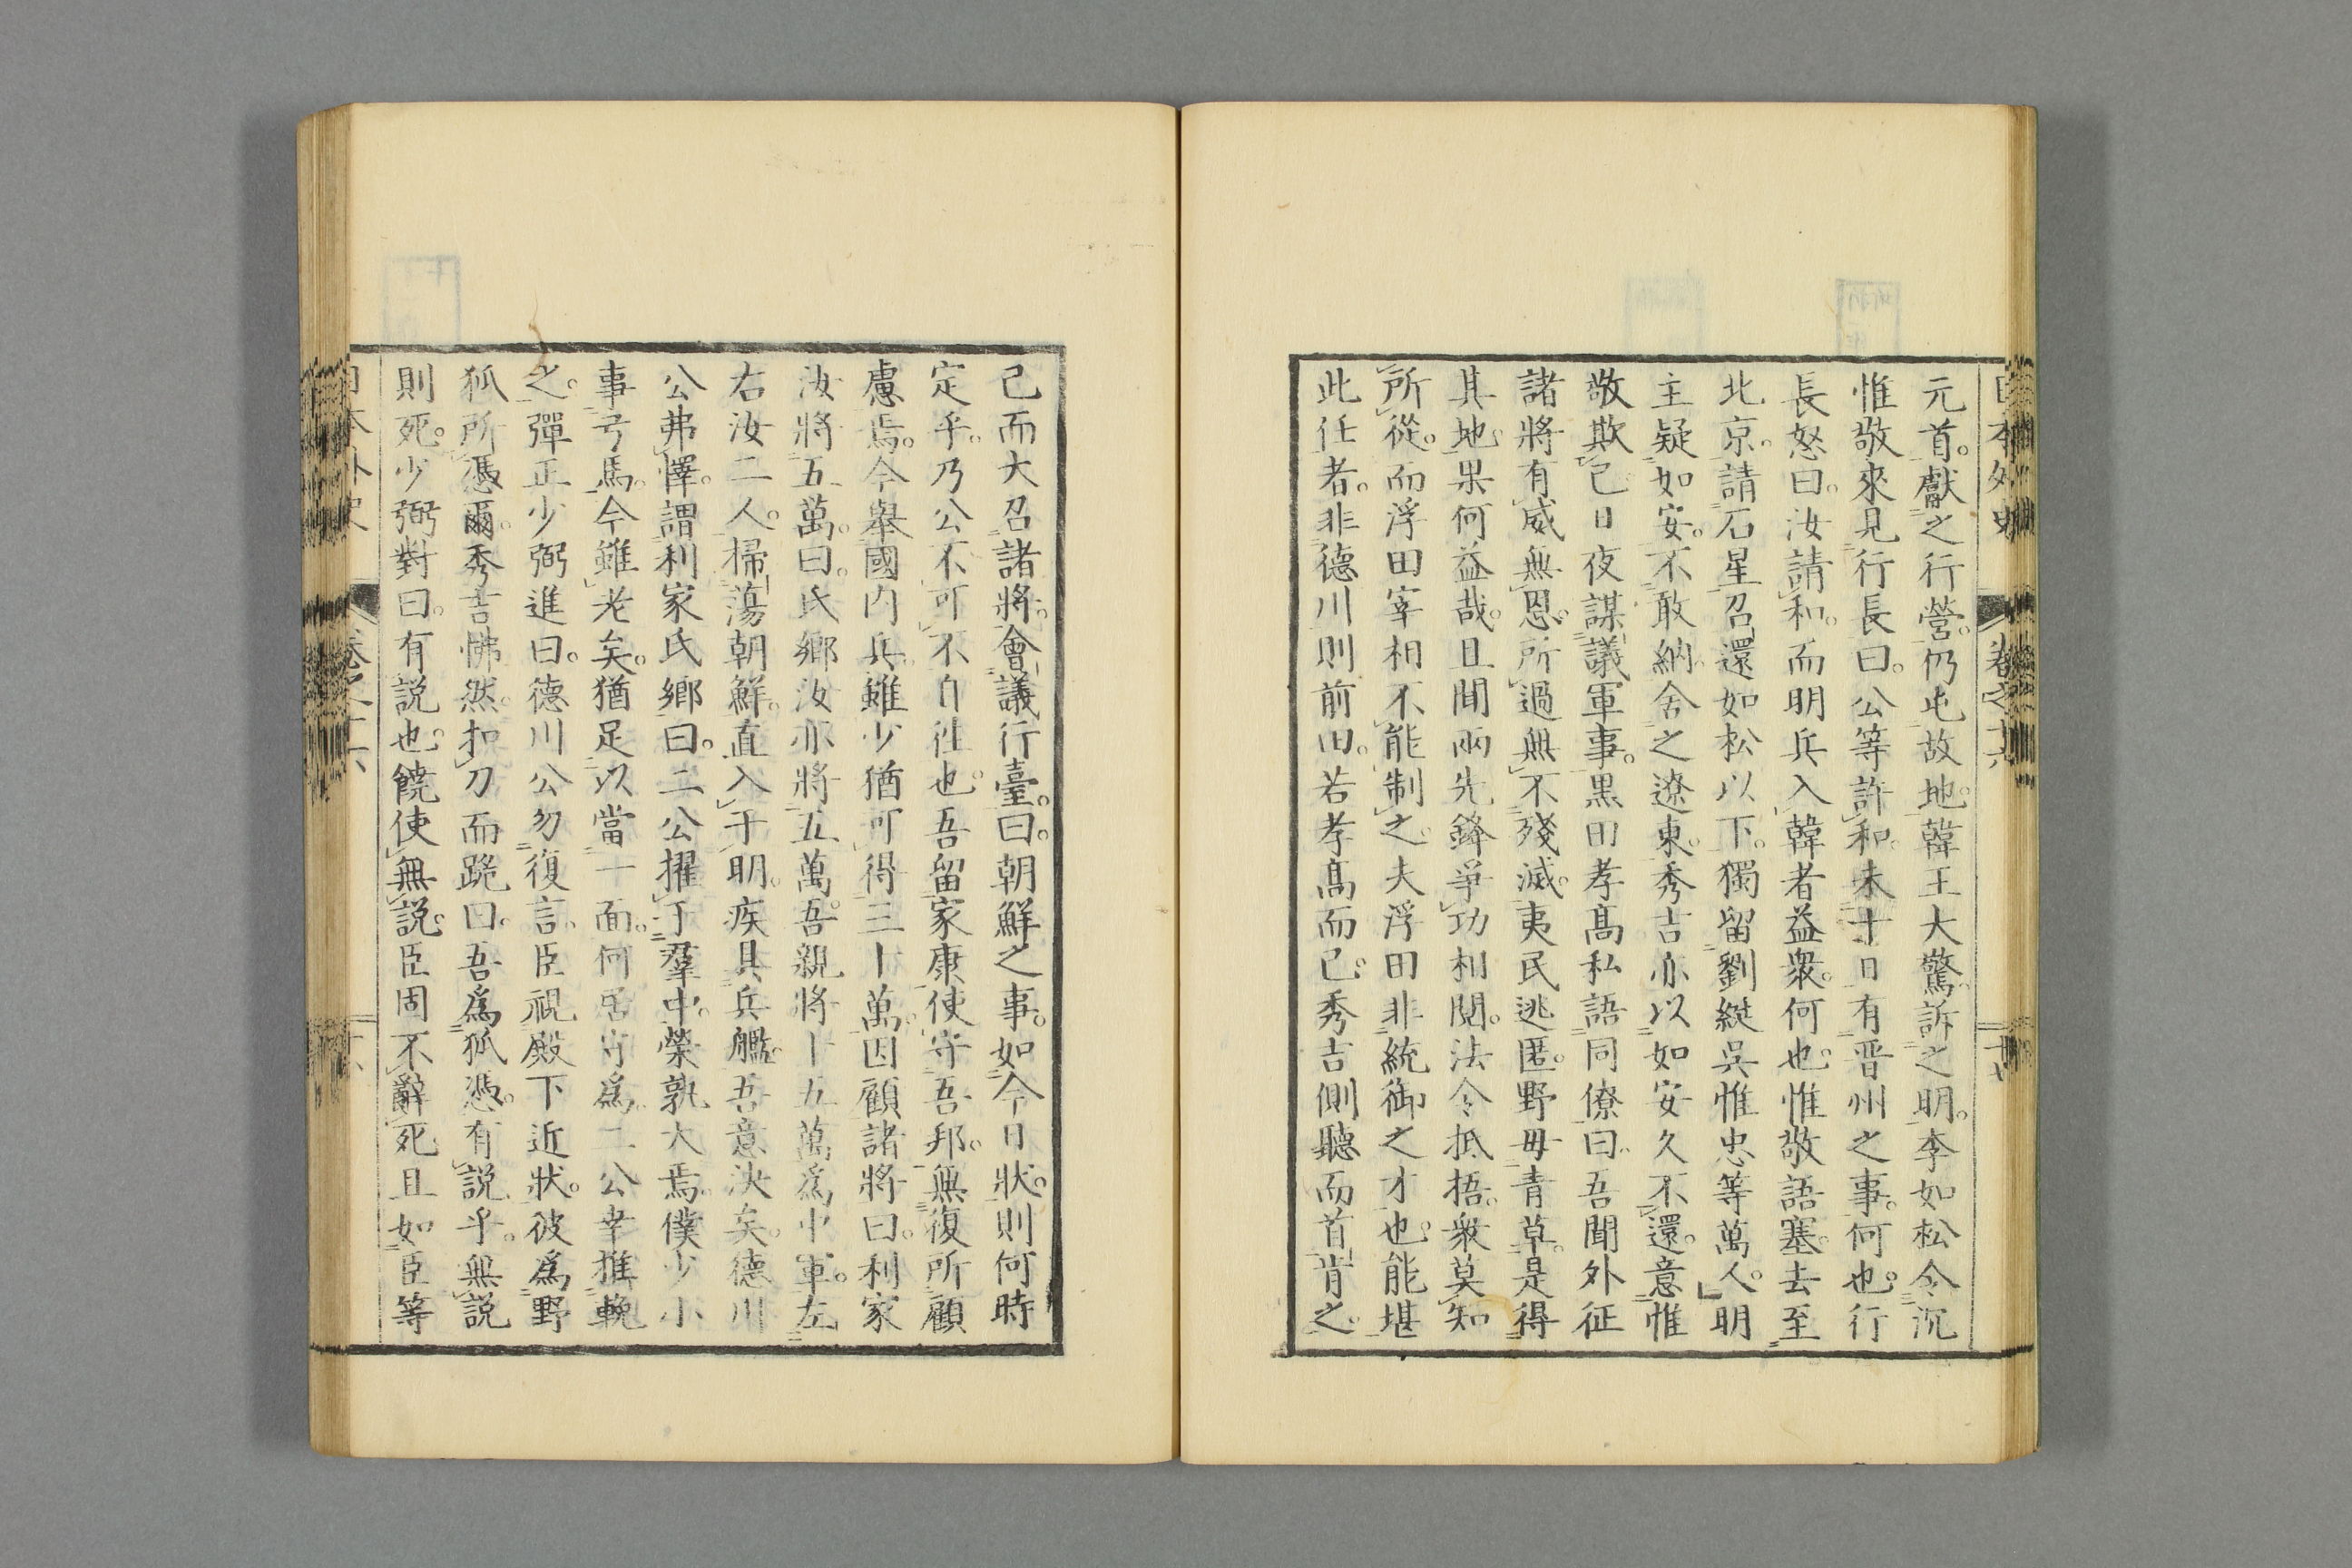 日本外史
卷之十六
元首。獻之行營。仍屯故地。韓王大驚。訴之明。李如松令沉
惟敬來見行長曰。公等許和。未十日有晋州之事。何也。行
長怒曰。汝請和。而明兵入韓者益衆。何也。惟敬語塞。去至
北京。請石星召還如松以下。獨留劉綎吳惟忠等萬人。明
主疑如安。不敢納。舍之遼東。秀吉亦以如安久不還。意惟
敬欺己。日夜謀議軍事。黒田孝髙私語同僚曰。吾聞外征
諸將有威無恩。所過無不殘滅。夷民逃匿。野毋青草。是得
其地。果何益哉。且聞兩先鋒爭功相鬩。法令抵捂。衆莫知
所從。而浮田宰相不能制之。夫浮田非統御之才也。能堪
此任者。非德川則前田。若孝髙而已。秀吉側聽而首肯之。
已而大召諸將。會議行臺。曰。朝鮮之事。如今日狀。則何時
定乎。乃公不可不自往也。吾留家康使守吾邦。無復所顧
慮焉。今舉國内兵。雖少猶可得三十萬。因顧諸將曰。利家
汝將五萬。曰。氏鄉汝亦將五萬。吾親將十五萬爲中軍。左
右汝二人。掃蕩朝鮮。直入于明。疾具兵艦。吾意決矣。德川
公弗懌。謂利家氏鄉曰。二公擢于羣中。榮孰大焉。僕少小
事弓馬。今雖老矣。猶足以當一面。何居守爲。二公幸推輓
之。彈正少弼進曰。德川公勿復言。臣視殿下近狀。彼爲野
狐所憑爾。秀吉怫然。扣刀而跪曰。吾爲狐憑。有説乎。無説
則死。少弼對曰。有説也。饒使無説。臣固不辭死。且如臣等